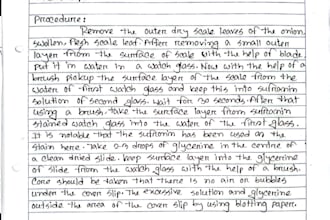 Procedure:
Remove the outer dry scale leaves of the onion
swollen, flesh scale leaf. After removing a small outer
layer from the surface of scale with the help of blade.
Put it in water in a watch glass. Now with the help of a
brush pickup the surface layer of the scale from the
water of first watch glass and keep this into safranin
solution of second glass. Wait for 30 seconds. After that
using a brush. Take the surface layer from safranin
stained watch glass into the water of the first glass.
It is notable that the safranin has been used as the
stain here. Take 2-3 drops of glycerine in the centre of
a clean dried slide. Keep surface layer into the glycerine
of slide from the watch glass with the help of a brush.
Care should be taken that there is no air on bubbles
under the cover slip. The excessive solution and glycerine
outside the area of the cover slip by using blotting paper.